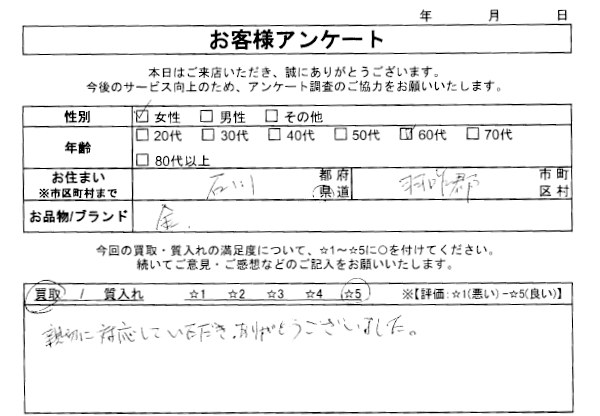 年 月 日
お客様アンケート
本日はご来店いただき、誠にありがとうございます。
今後のサービス向上のため、アンケート調査のご協力をお願いいたします。
性別 女性 男性 その他
年齢 20代 30代 40代 50代 60代 70代
80代以上
お住まい ※市区町村まで 石川 都府県道 羽咋郡 市町区村
お品物/ブランド 金.
今回の買取・質入れの満足度について、☆1～☆5に○を付けてください。
続いてご意見・ご感想などのご記入をお願いいたします。
買取 / 質入れ ☆1 ☆2 ☆3 ☆4 ☆5 ※【評価:☆1(悪い)−☆5(良い)】
親切に対応していただきありがとうございました。